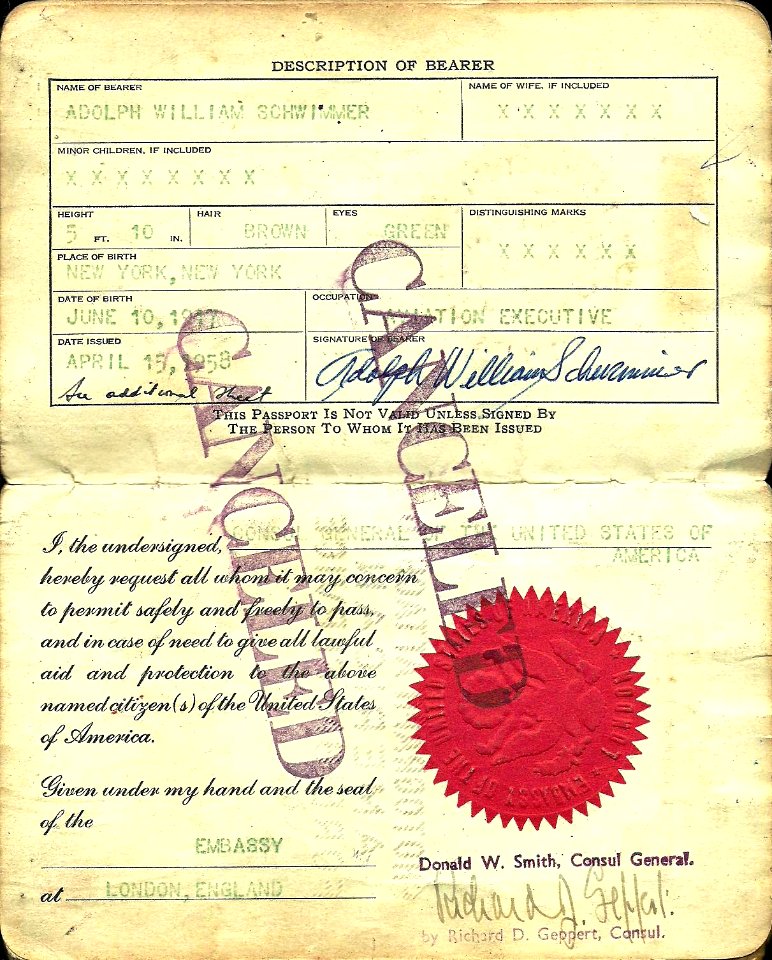 DESCRIPTION OF BEARER
NAME OF BEARER
ADOLPH WILLIAM SCHWIMMER
NAME OF WIFE, IF INCLUDED
X X X X X X X
MINOR CHILDREN, IF INCLUDED
X X X X X X X X
HEIGHT
5 FT. 10 IN.
HAIR
BROWN
EYES
GREEN
DISTINGUISHING MARKS
X X X X X X
PLACE OF BIRTH
NEW YORK, NEW YORK
DATE OF BIRTH
JUNE 10, 1917
OCCUPATION
AVIATION EXECUTIVE
DATE ISSUED
APRIL 15, 1958
See additional sheet
SIGNATURE OF BEARER
Adolph William Schwimmer
THIS PASSPORT IS NOT VALID UNLESS SIGNED BY
THE PERSON TO WHOM IT HAS BEEN ISSUED
CANCELLED
CANCELLED
I, the undersigned, CONSUL GENERAL OF THE UNITED STATES OF
AMERICA
hereby request all whom it may concern
to permit safely and freely to pass,
and in case of need to give all lawful
aid and protection to the above
named citizen(s) of the United States
of America.
Given under my hand and the seal
of the
EMBASSY
at LONDON, ENGLAND
Donald W. Smith, Consul General.
Richard D. Geppert
by Richard D. Geppert, Consul.